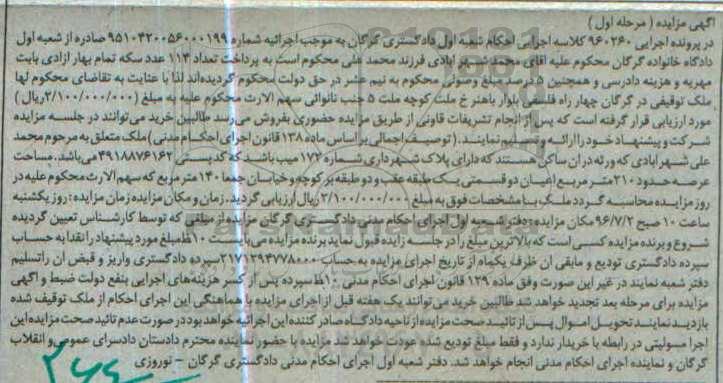 آگهی مزایده ( مرحله اول )
در پرونده اجرایی ۹۶۰۲۶۰ کلاسه اجرایی احکام شعبه اول دادگستری گرگان به موجب اجرائیه شماره ۹۵۱۰۴۲۰۰۵۶۰۰۰۱۹۹ صادره از شعبه اول
دادگاه خانواده گرگان محکوم علیه آقای محمد شهرابادی فرزند محمد علی محکوم است به پرداخت تعداد ۱۱۴ عدد سکه تمام بهار آزادی بابت
مهریه و هزینه دادرسی و همچنین ۵درصد مبلغ وصولی محکوم به نیم عشر در حق دولت محکوم گردیده‌اند لذا با عنایت به تقاضای محکوم لها
ملک توقیفی در گرگان چهار راه فلسفی بلوار باهنر خ ملت کوچه ملت ۵ جنب نانوائی سهم الارث محکوم علیه به مبلغ (۲/۱۰۰/۰۰۰/۰۰۰ریال )
مورد ارزیابی قرار گرفته است که پس از انجام تشریفات قانونی از طریق مزایده حضوری بفروش می‌رسد طالبین خرید می‌توانند در جلسه مزایده
شرکت و پیشنهاد خود را ارائه و تسلیم نمایند. ( توصیف اجمالی بر اساس ماده ۱۳۸ قانون اجرای احکام مدنی ) ملک متعلق به مرحوم محمد
علی شهرابادی که ورثه در ان ساکن هستند که دارای پلاک شهرداری شماره ۱۷۲ میب باشد که کد پستی ۴۹۱۸۸۷۶۱۶۲ می‌باشد. مساحت
عرصه حدود ۲۱۰متر مربع اعیان دو قسمتی یک طبقه عقب و دو طبقه بر کوچه و خیابان جمعا ۱۴۰ متر مربع که سهم الارث محکوم علیه در
روز مزایده محاسبه گردد ملک با مشخصات فوق به مبلغ ۲/۱۰۰/۰۰۰/۰۰۰ریال ارزیابی گردید. زمان و مکان مزایده زمان مزایده : روز یکشنبه
ساعت ۱۰ صبح ۹۶/۷/۲ مکان مزایده : دفتر شعبه اول اجرای احکام مدنی دادگستری گرگان مزایده از مبلغی که توسط کارشناس تعیین گردیده
شروع و برنده مزایده کسی است که بالاترین مبلغ را در جلسه زایده قبول نماید برنده مزایده می‌بایست ۱۰٪ مبلغ مورد پیشنهاد را نقدا به حساب
سپرده دادگستری تودیع و مابقی ان ظرف یکماه از تاریخ اجرای مزایده به حساب ۲۱۷۱۲۹۴۷۷۸۰۰۰ سپرده دادگستری واریز و قبض ان را تسلیم
دفتر شعبه نمایند در غیر این صورت وفق ماده ۱۲۹ قانون اجرای احکام مدنی ۱۰٪ سپرده پس از کسر هزینه‌های اجرایی بنفع دولت ضبط و آگهی
مزایده برای مرحله بعد تجدید خواهد شد طالبین خرید می‌توانند یک هفته قبل از اجرای مزایده با هماهنگی این اجرای احکام از ملک توقیف شده
بازدید نمایند تحویل اموال پس از تائید صحت مزایده از ناحیه دادگاه صادر کننده این اجرائیه خواهد بود در صورت عدم تائید صحت مزایده این
اجرا مسولیتی در رابطه با خریدار ندارد و فقط مبلغ تودیع شده عودت خواهد شد مزایده با حضور نماینده محترم دادستان دادسرای عمومی و انقلاب
گرگان و نماینده اجرای احکام مدنی انجام خواهد شد. دفتر شعبه اول اجرای احکام مدنی دادگستری گرگان – نوروزی